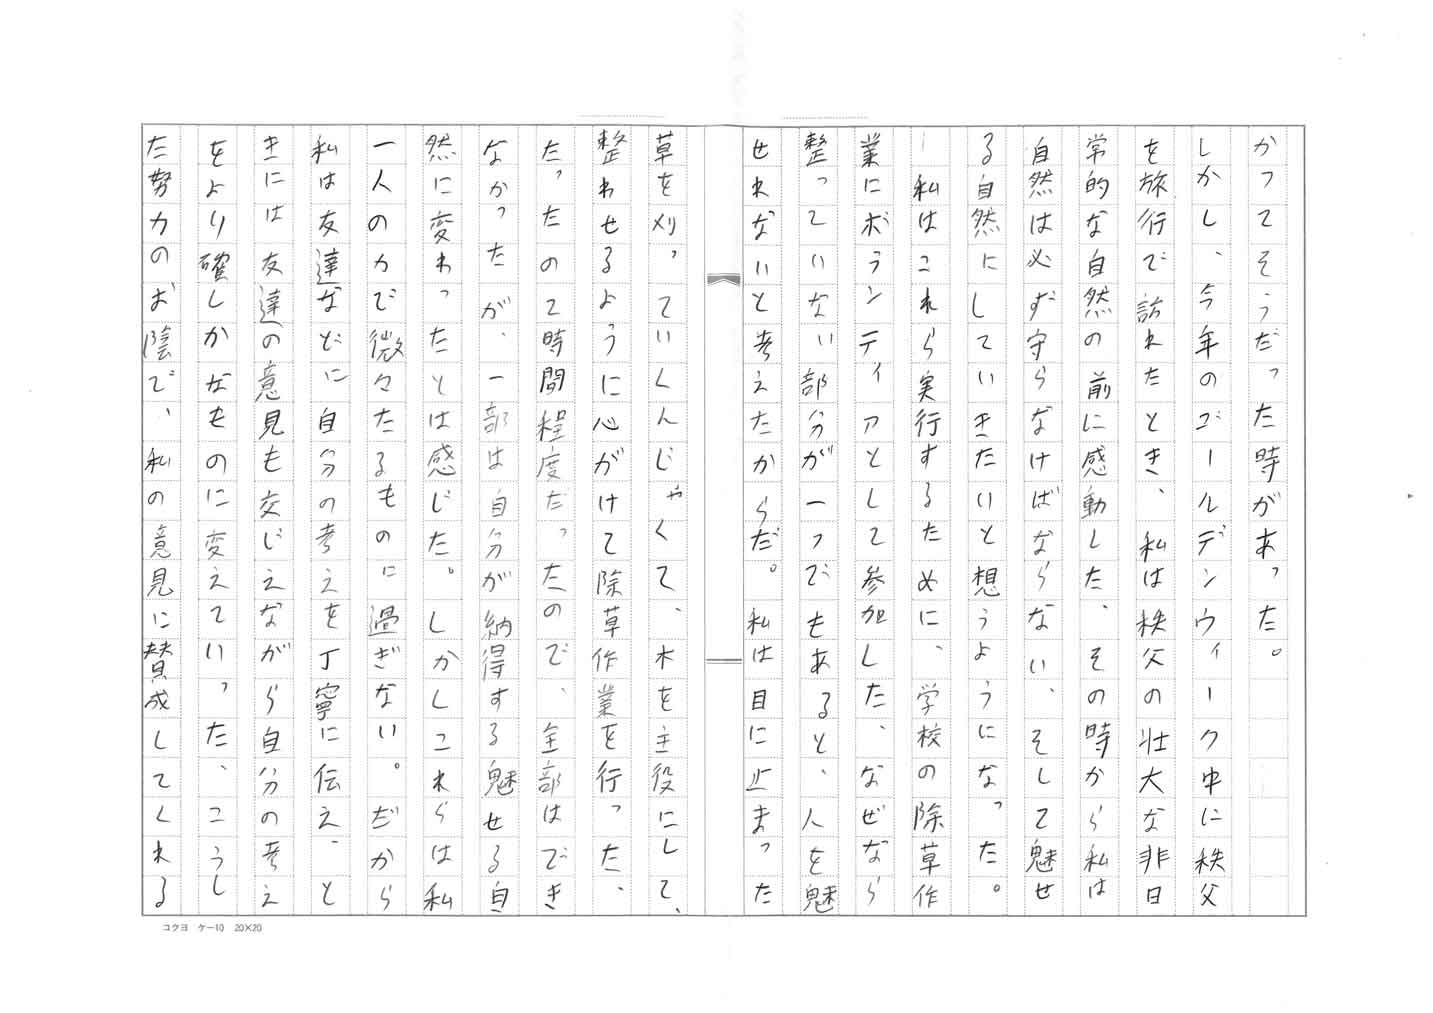 かってそうだった時があった。
しかし、今年のゴールデンウィーク中に秩父
を旅行で訪れたとき、私は秩父の壮大な非日
常的な自然の前に感動した、その時から私は
自然は必ず守らなければならない、そして魅せ
る自然にしていきたいと想うようになった。
私はこれら実行するために、学校の除草作
業にボランティアとして参加した、なぜなら
整っていない部分が一つでもあると、人を魅
せれないと考えたからだ。私は目に止まった
草を刈っていくんじゃくて、木を主役にして、
整わせるように心がけて除草作業を行った、
たったの2時間程度だったので、全部はでき
なかったが、一部は自分が納得する魅せる自
然に変わったとは感じた。しかしこれらは私
一人の力で微々たるものに過ぎない。だから
私は友達などに自分の考えを丁寧に伝え、と
きには友達の意見も交じえながら自分の考え
をより確しかなものに変えていった、こうし
た努力のお陰で、私の意見に賛成してくれる
コクヨ ケー10 20×20